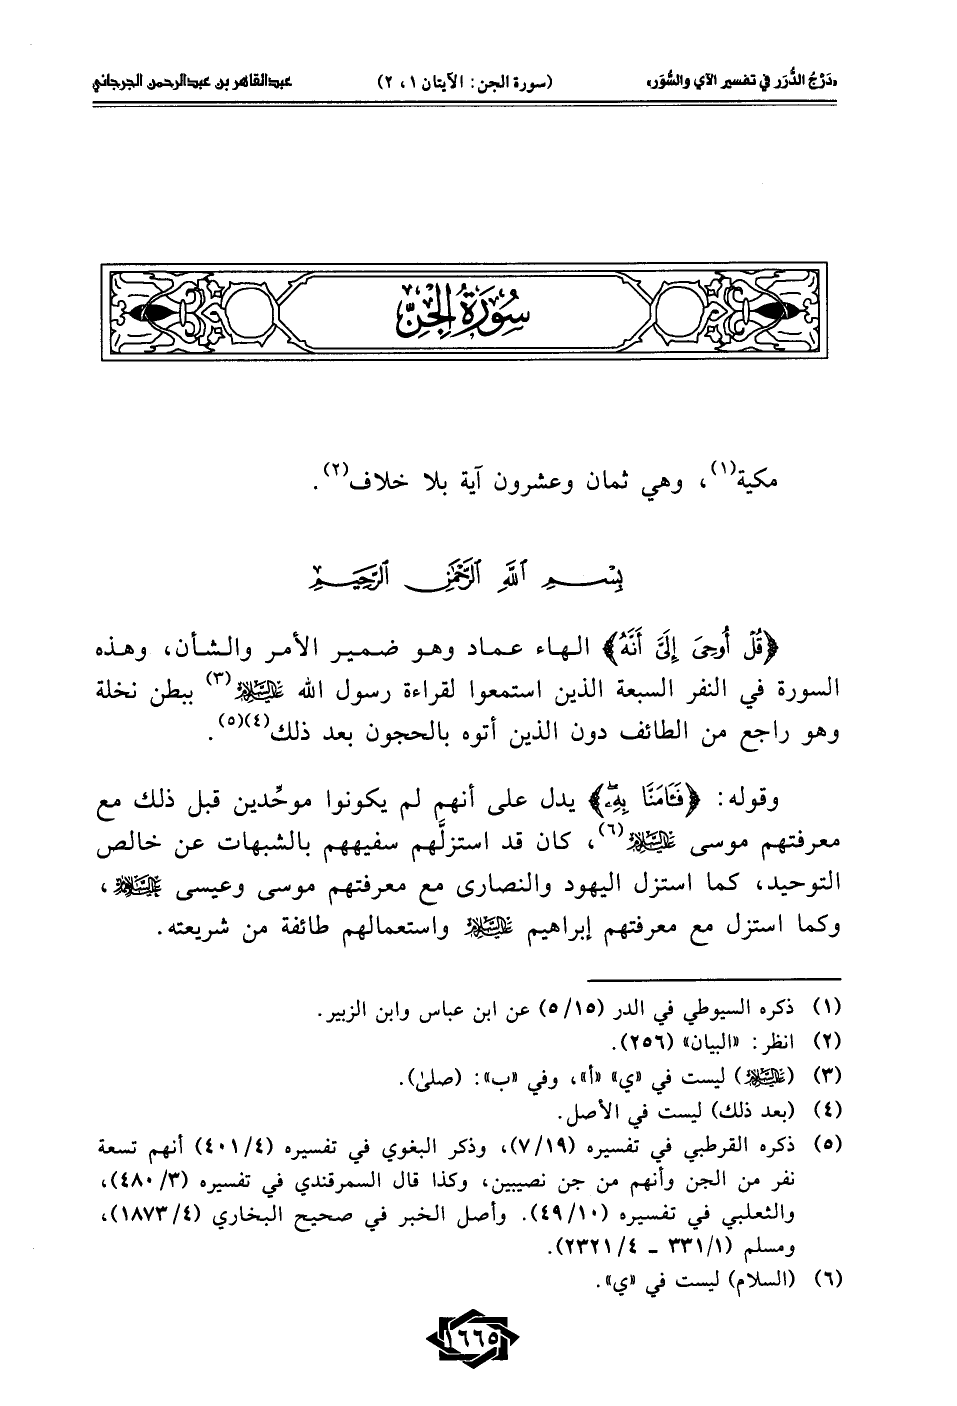 «دَرْجُ الدُّرَر في تفسير الآي والسُّوَر» (سورة الجن: الآيتان ١، ٢) عبدالقاهر بن عبدالرحمن الجرجاني
سُورَةُ الجِنِّ
مكية(١)، وهي ثمان وعشرون آية بلا خلاف(٢).
بِسْمِ ٱللَّهِ ٱلرَّحْمَٰنِ ٱلرَّحِيمِ
﴿قُلْ أُوحِىَ إِلَىَّ أَنَّهُ﴾ الهاء عماد وهو ضمير الأمر والشأن، وهذه
السورة في النفر السبعة الذين استمعوا لقراءة رسول الله عليه السلام(٣) ببطن نخلة
وهو راجع من الطائف دون الذين أتوه بالحجون بعد ذلك(٤)(٥).
وقوله: ﴿فَـَٔامَنَّا بِهِۦۖ﴾ يدل على أنهم لم يكونوا موحِّدين قبل ذلك مع
معرفتهم موسى عليه السلام(٦)، كان قد استزلَّهم سفيههم بالشبهات عن خالص
التوحيد، كما استزل اليهود والنصارى مع معرفتهم موسى وعيسى عليه السلام،
وكما استزل مع معرفتهم إبراهيم عليه السلام واستعمالهم طائفة من شريعته.
(١) ذكره السيوطي في الدر (٥/١٥) عن ابن عباس وابن الزبير.
(٢) انظر: «البيان» (٢٥٦).
(٣) (عليه السلام) ليست في «ي» «أ»، وفي «ب»: (صلىٰ).
(٤) (بعد ذلك) ليست في الأصل.
(٥) ذكره القرطبي في تفسيره (٧/١٩)، وذكر البغوي في تفسيره (٤٠١/٤) أنهم تسعة
نفر من الجن وأنهم من جن نصيبين، وكذا قال السمرقندي في تفسيره (٤٨٠/٣)،
والثعلبي في تفسيره (٤٩/١٠). وأصل الخبر في صحيح البخاري (١٨٧٣/٤)،
ومسلم (٣٣١/١ - ٢٣٢١/٤).
(٦) (السلام) ليست في «ي».
١٦٦٥